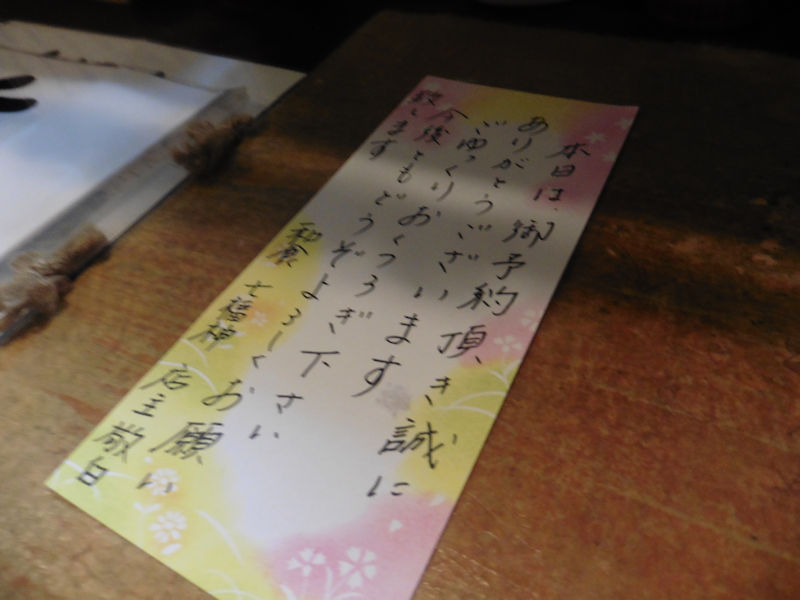 本日は、御予約頂き誠に
ありがとうございます
ごゆっくりおくつろぎ下さい
今後ともどうぞよろしくお願い
致します
和食 七福神 店主敬白